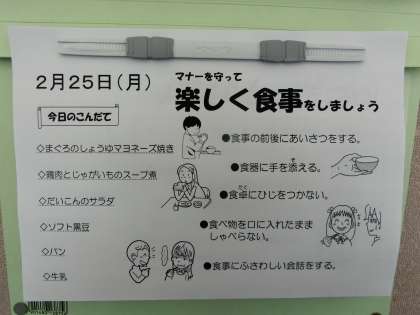 2月25日(月)
マナーを守って
楽しく食事をしましょう
今日のこんだて
◇まぐろのしょうゆマヨネーズ焼き
◇鶏肉とじゃがいものスープ煮
◇だいこんのサラダ
◇ソフト黒豆
◇パン
◇牛乳
●食事の前後にあいさつをする。
●食器に手を添える。
●食卓にひじをつかない。
●食べ物を口に入れたまま
しゃべらない。
●食事にふさわしい会話をする。